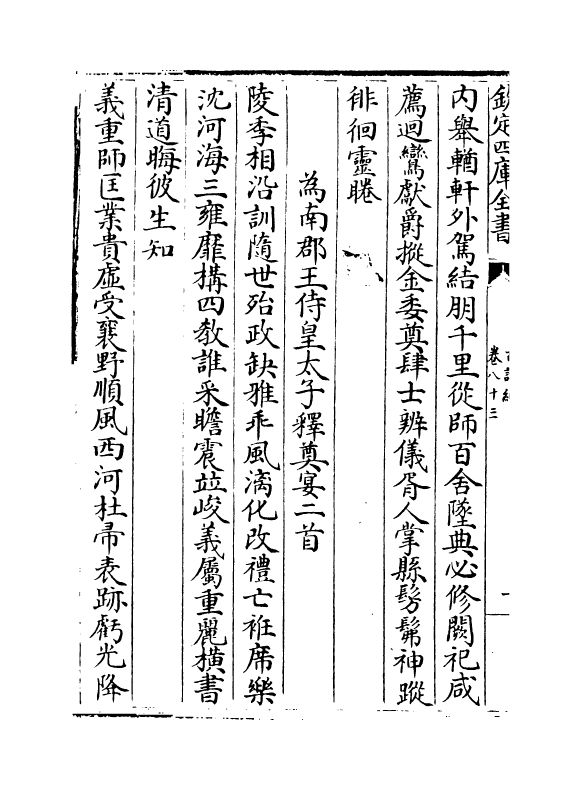 欽定四庫全書
卷八十三
内舉輶軒外駕結朋千里從師百舍墜典必修闕祀咸
薦迴鸞獻爵摐金委奠肆士辨儀胥人掌縣髣髴神蹤
徘徊靈睠
為南郡王侍皇太子釋奠宴二首
陵季相沿訓隨世殆政缺雅乖風漓化改禮亡袵席樂
沈河海三雍靡構四教誰采瞻震竝峻義屬重麗横書
清道晦彼生知
義重師匡業貴虛受襄野順風西河杜帚表跡虧光降